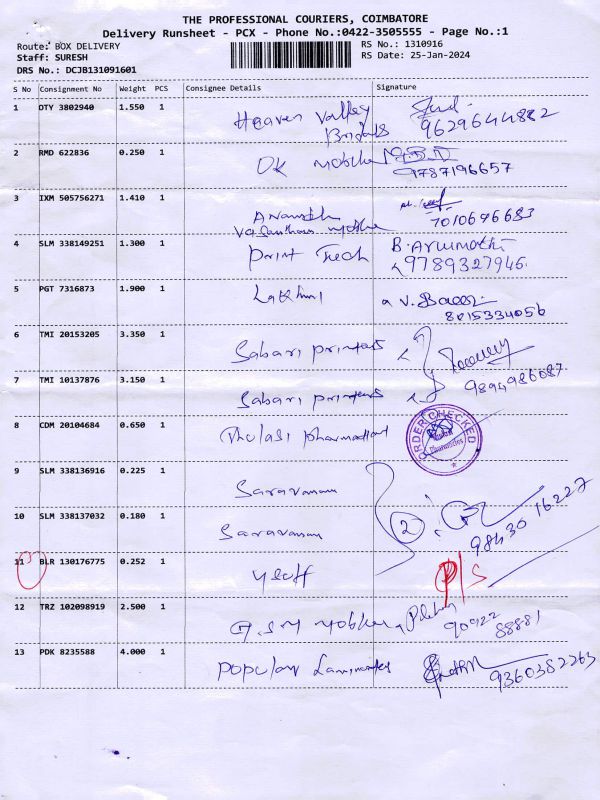 THE PROFESSIONAL COURIERS, COIMBATORE
Delivery Runsheet - PCX - Phone No.:0422-3505555 - Page No.:1
Route: BOX DELIVERY
Staff: SURESH
DRS No.: DCJB131091601
RS No.: 1310916
RS Date: 25-Jan-2024
S No Consignment No Weight PCS Consignee Details Signature
1 DTY 3802940 1.550 1 Heaven Valley
Bridals 9629644882
2 RMD 622836 0.250 1 OK Mobile
9787196657
3 IXM 505756271 1.410 1
Vasantham mobile 7010676683
4 SLM 338149251 1.300 1 Print Tech B. Arumathi
9789327946
5 PGT 7316873 1.900 1 Lakshmi
8015334056
6 TMI 20153205 3.350 1 Sabari Printers
7 TMI 10137876 3.150 1 Sabari Printers 9894986087
8 CDM 20104684 0.650 1 Thulasi ORDER CHECKED
Pharmacies
9 SLM 338136916 0.225 1 Saravanan
10 SLM 338137032 0.180 1 Saravanan 2 98430 16227
11 BLR 130176775 0.252 1 P/S
12 TRZ 102098919 2.500 1 G.S.M Mobile 90922
88881
13 PDK 8235588 4.000 1 Popular Laminates 9360382263